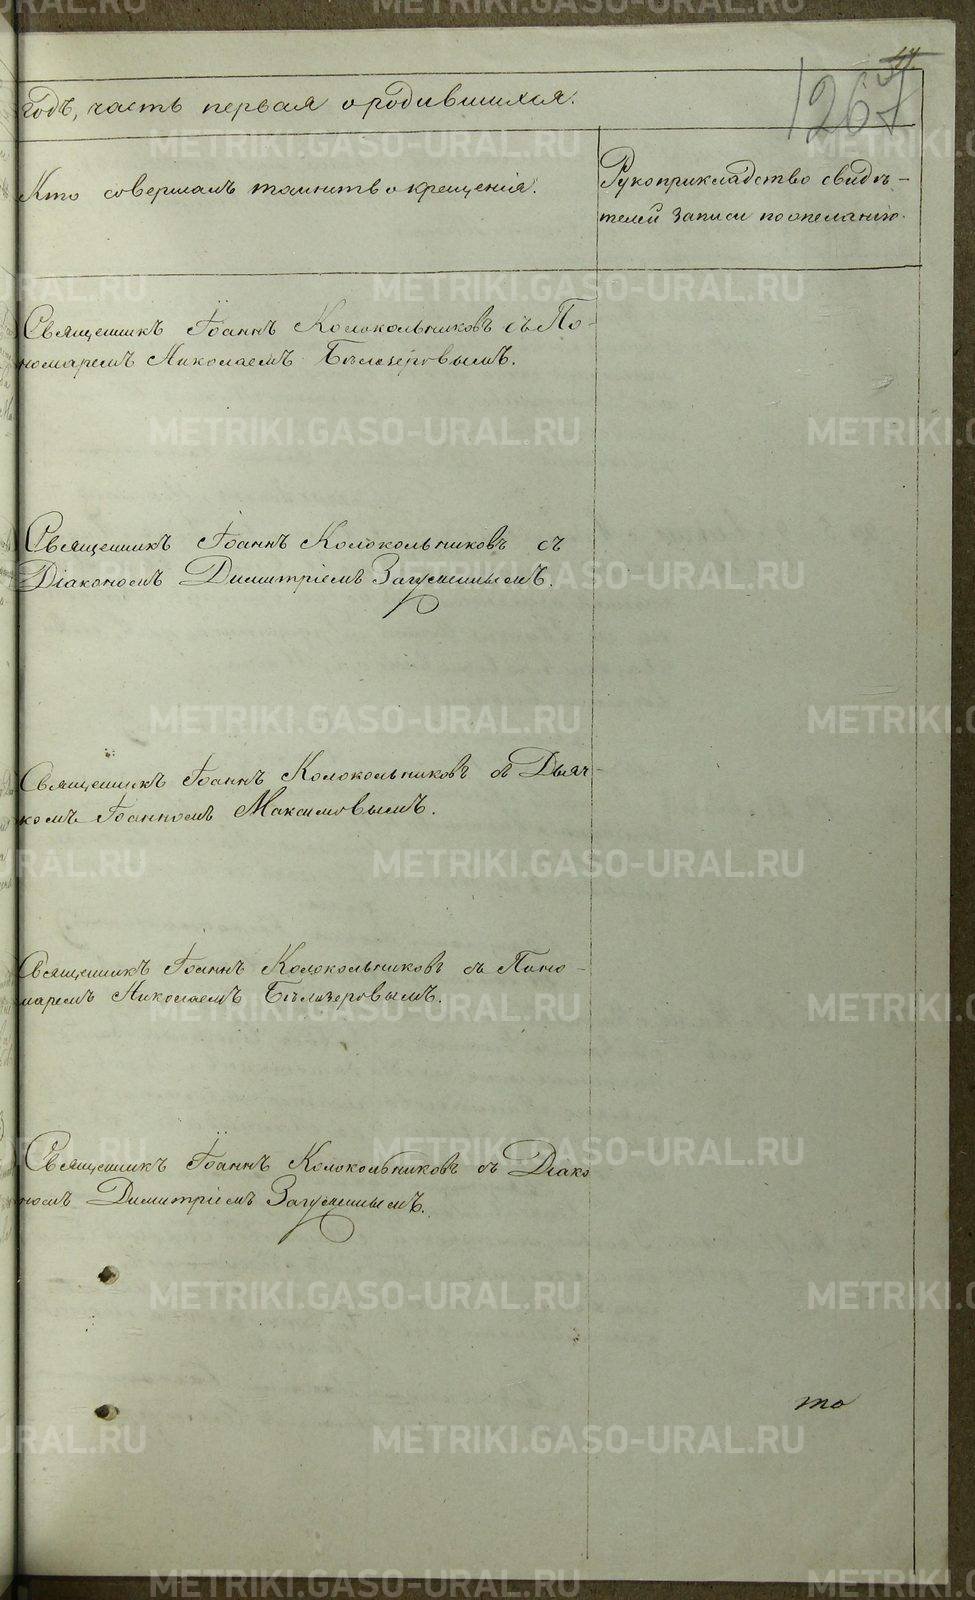 годъ, часть первая о родившихся.
1267
Кто совершалъ таинство крещенія.
Рукоприкладство свидѣ-
телей записи по желанію.
Священникъ Іоаннъ Колокольниковъ съ По-
номаремъ Николаемъ Бѣлозеровымъ.
Священникъ Іоаннъ Колокольниковъ съ
Діакономъ Димитріемъ Загуменнымъ.
Священникъ Іоаннъ Колокольниковъ съ Дьяч-
комъ Іоанномъ Максимовымъ.
Священникъ Іоаннъ Колокольниковъ съ Поно-
маремъ Николаемъ Бѣлозеровымъ.
Священникъ Іоаннъ Колокольниковъ съ Діако
номъ Димитріемъ Загуменнымъ.
то
METRIKI.GASO-URAL.RU